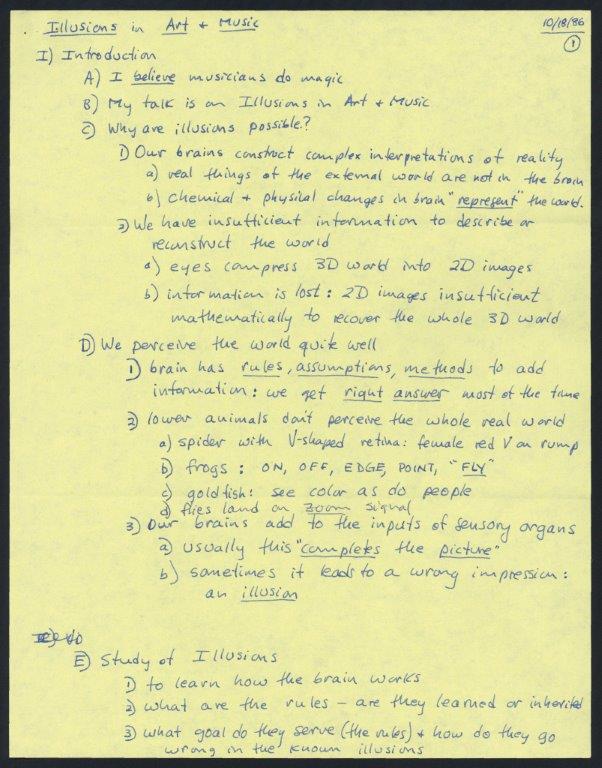 Illusions in Art + Music 10/18/86
1
I) Introduction
A) I believe musicians do magic
B) My talk is on Illusions in Art + Music
C) Why are illusions possible?
1) Our brains construct complex interpretations of reality
a) real things of the external world are not in the brain
b) chemical + physical changes in brain "represent" the world.
2) We have insufficient information to describe or
reconstruct the world
a) eyes compress 3D world into 2D images
b) information is lost: 2D images insufficient
mathematically to recover the whole 3D world
D) We perceive the world quite well
1) brain has rules, assumptions, methods to add
information: we get right answer most of the time
2) lower animals don't perceive the whole real world
a) spider with V-shaped retina: female red V on rump
b) frogs: ON, OFF, EDGE, POINT, "FLY"
c) goldfish: see color as do people
d) flies land on zoom signal
3) Our brains add to the inputs of sensory organs
a) usually this "completes the picture"
b) sometimes it leads to a wrong impression:
an illusion
E) Study of Illusions
1) to learn how the brain works
2) what are the rules - are they learned or inherited
3) what goal do they serve (the rules) + how do they go
wrong in the known illusions